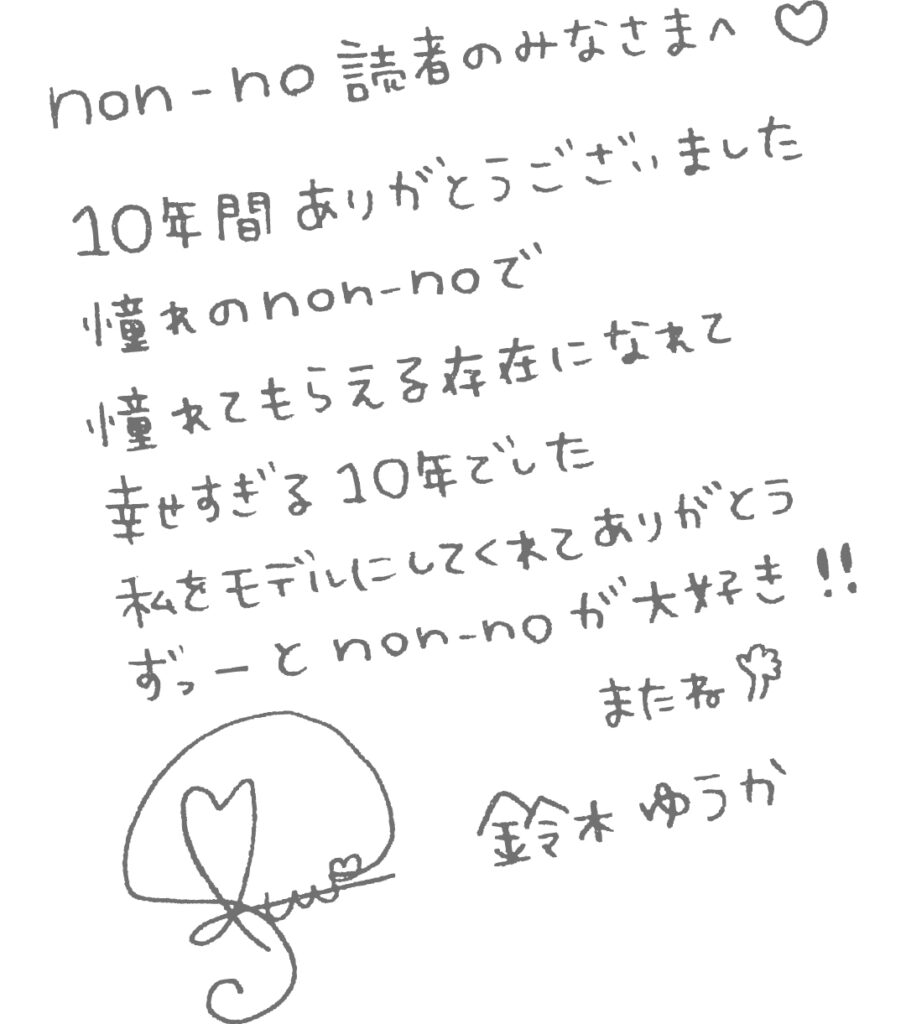 non-no 読者のみなさまへ ♡
10年間 ありがとうございました
憧れのnon-noで
憧れてもらえる存在になれて
幸せすぎる 10年でした
私をモデルにしてくれてありがとう
ずっーと non-no が大好き !!
またね
鈴木 ゆうか